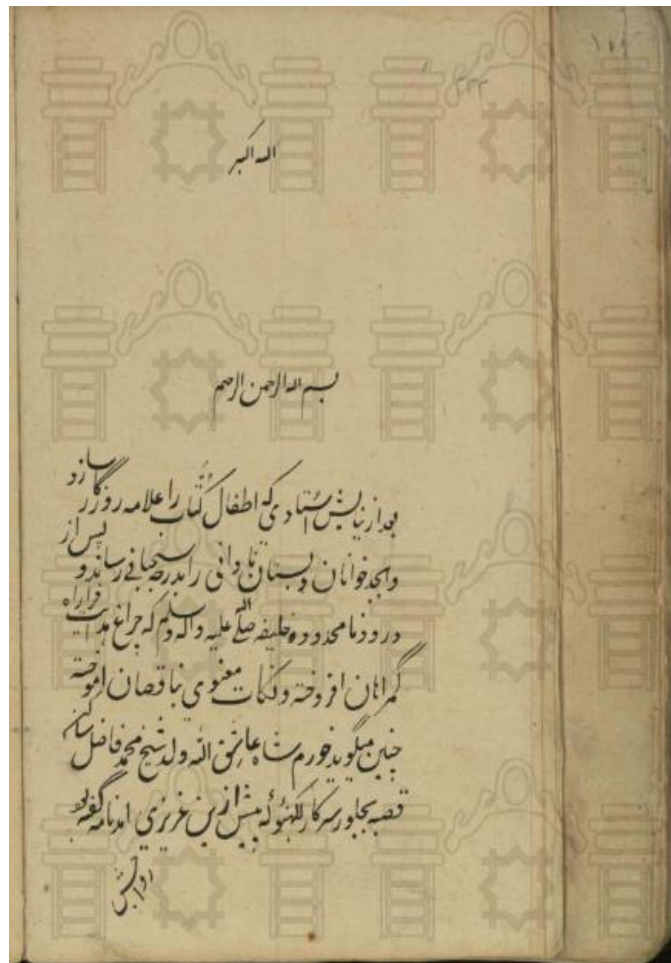 ۱۰۰
۳۳۳
الله اکبر
بسم الله الرحمن الرحیم
بعد از نیایش استادی که اطفال کتاب را علامه روزگار سازد
و ابجد خوانان دبستان نادانی را بدرجه سبحانی رساند و پس از
درود نامحدود خلیفه صلی الله علیه واله وسلم که چراغ هدایت فرا راه
گمراهان افروخته و نکات معنوی بناقصان اموخته
چنین میگوید خورم شاه عاشق الله ولد شیخ محمد فاضل ساکن
قصبه بجلور سرکار لکهنؤ که پیش ازین عزیزی امدنامه گفته بود